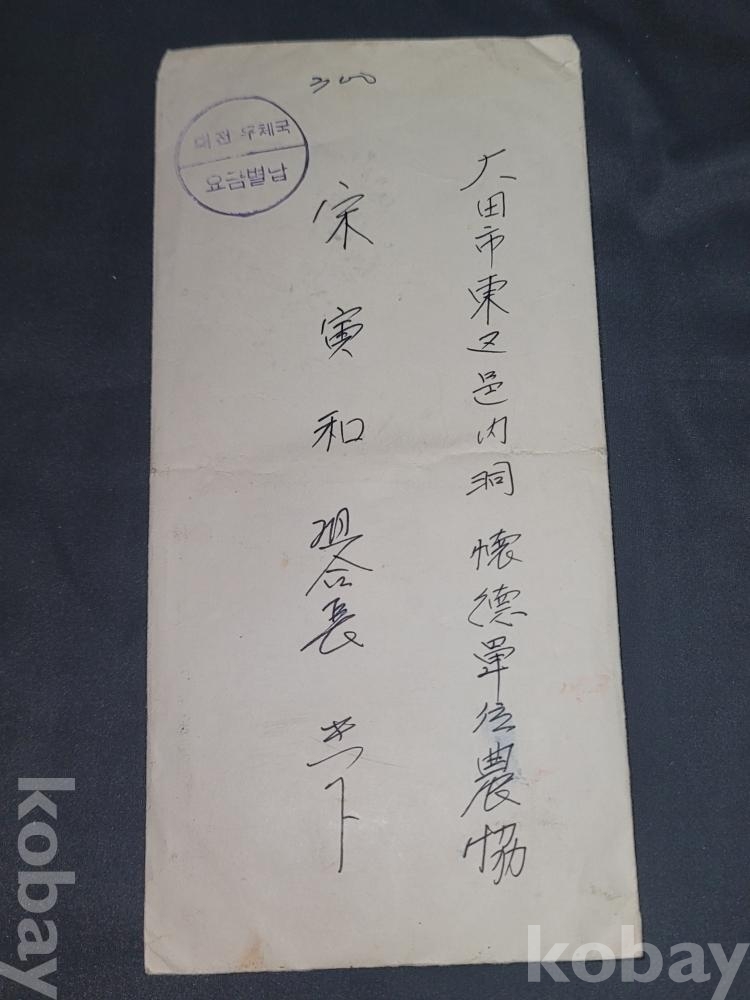 300
대전 우체국
요금별납
大田市東区邑内洞 懷德單位農協
宋寅和 組合長 貴下
kobay
kobay